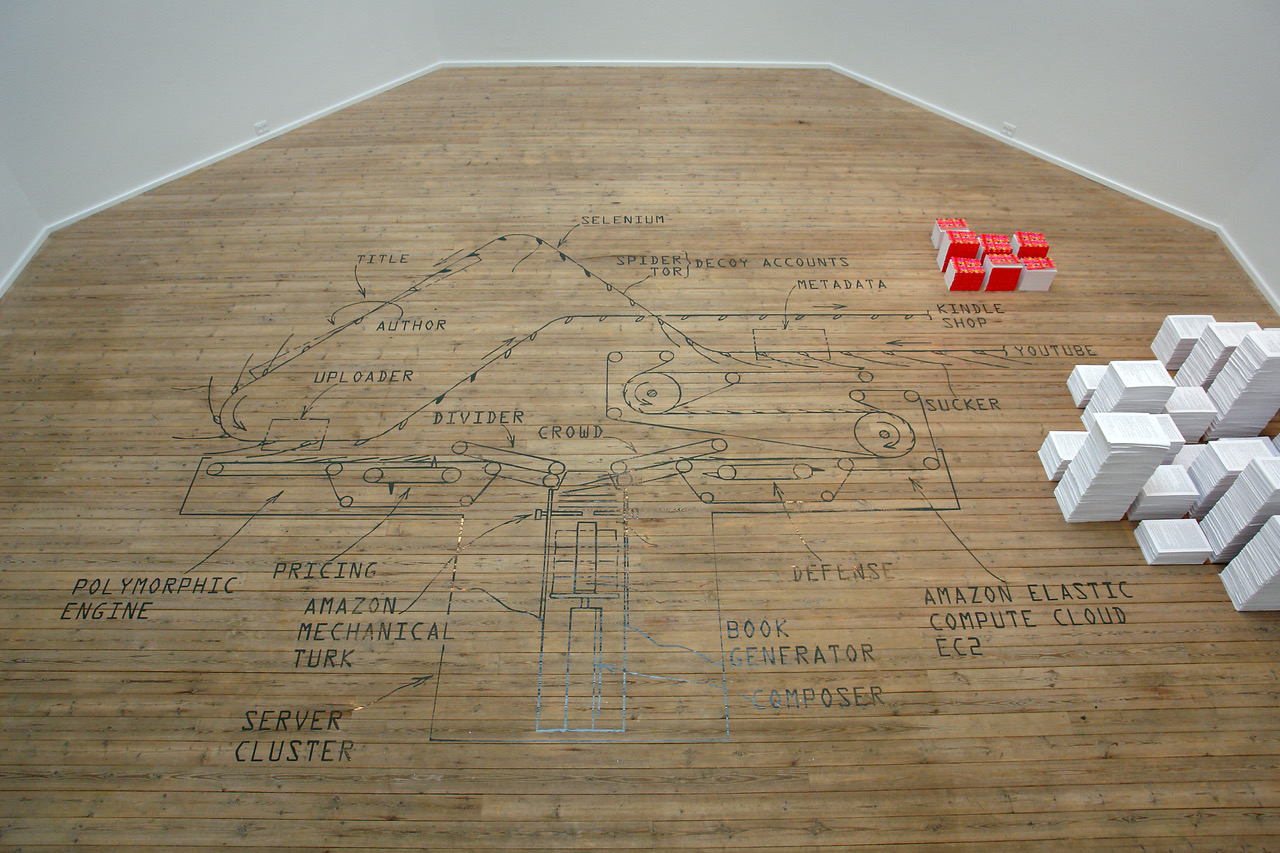 SELENIUM
TITLE
SPIDER
TOR
DECOY ACCOUNTS
METADATA
KINDLE
SHOP
AUTHOR
YOUTUBE
UPLOADER
SUCKER
DIVIDER
CROWD
POLYMORPHIC
ENGINE
PRICING
DEFENSE
AMAZON
MECHANICAL
TURK
AMAZON ELASTIC
COMPUTE CLOUD
EC2
BOOK
GENERATOR
COMPOSER
SERVER
CLUSTER